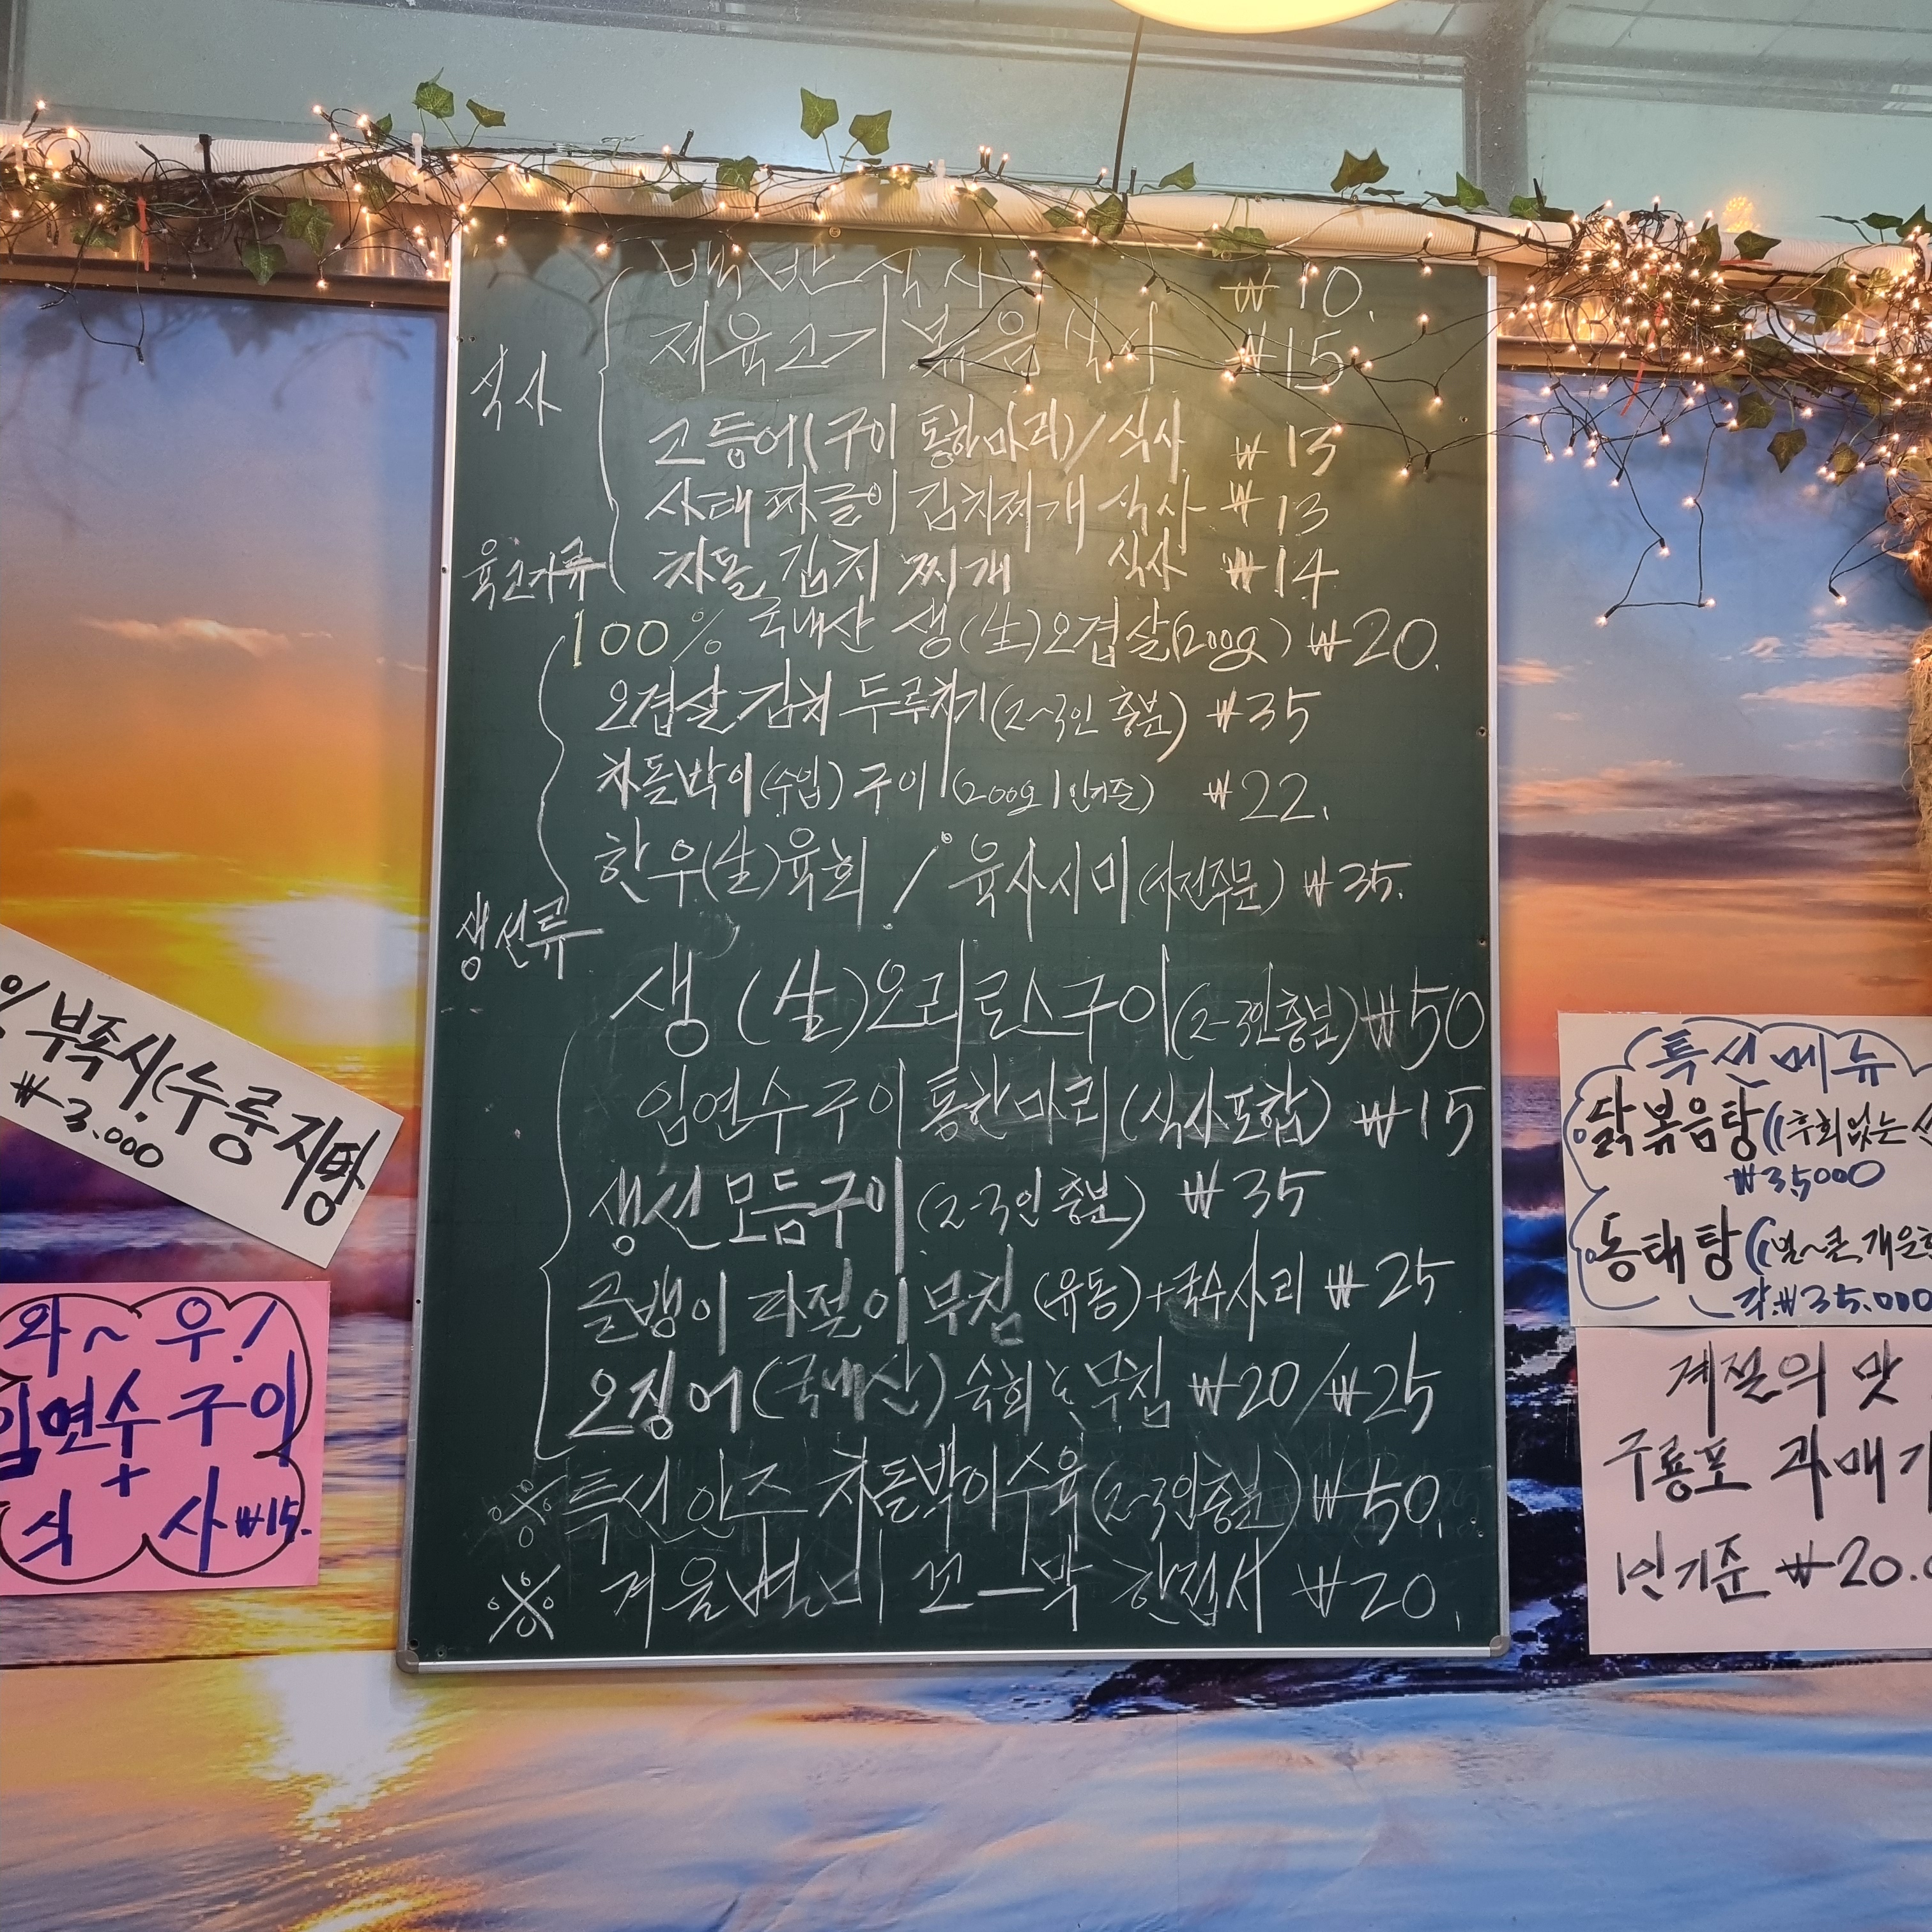 백반 식사 ₩10.
제육고기볶음 식사 ₩15
식사
고등어(구이 통한마리)/식사 ₩13
사태짜글이 김치찌개 식사 ₩13
육고기류
차돌 김치 찌개 식사 ₩14
100% 국내산 생(生)오겹살(200g) ₩20.
오겹살 김치 두루치기(2~3인 충분) ₩35
차돌박이(수입)구이(200g 1인기준) ₩22.
한우(生)육회 / 육사시미(사전주문) ₩35.
생선류
생(生)오리로스구이(2-3인충분)₩50
임연수구이 통한마리(식사포함) ₩15
생선모듬구이(2-3인 충분) ₩35
골뱅이 파절이 무침(유동)+국수사리 ₩25
오징어(국내산) 숙회 무침 ₩20/₩25
※특선 안주 차돌박이수육(2~3인충분)₩50.
※ 겨울별미 꼬-막 한접시 ₩20.
% 부족시(누룽지탕
₩3.000
와~우!
임연수구이
+
식사₩15.
특선메뉴
닭볶음탕((후회없는
₩35,000
동태탕((벌~큰, 개운한
각₩35.000
계절의 맛
구룡포 과메기
1인기준 ₩20.0